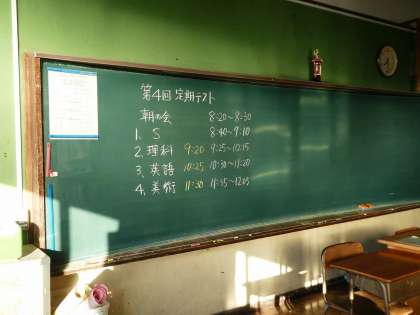 第4回 定期テスト
朝の会 8:20~8:30
1. S 8:40~9:10
2. 理科 9:20 9:25~10:15
3. 英語 10:25 10:30~11:20
4. 美術 11:30 11:35~12:05